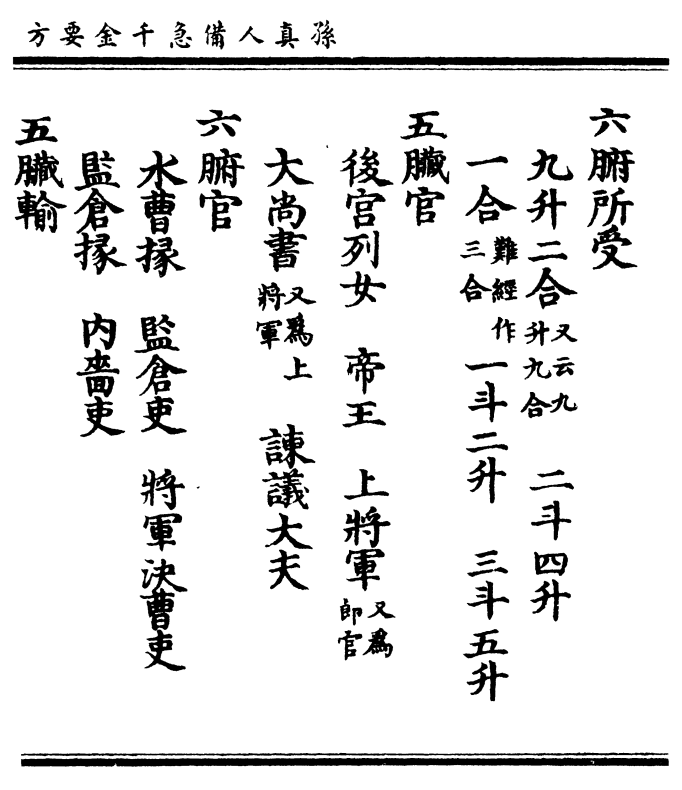 孫真人備急千金要方
六腑所受
九升二合又云九升九合 二斗四升
一合難經作三合 一斗二升 三斗五升
五臓官
後宫列女 帝王 上將軍又爲郎官
大尚書又爲上將軍 諫議大夫
六腑官
水曹掾 監倉吏 將軍決曹吏
監倉掾 内嗇吏
五臓輸